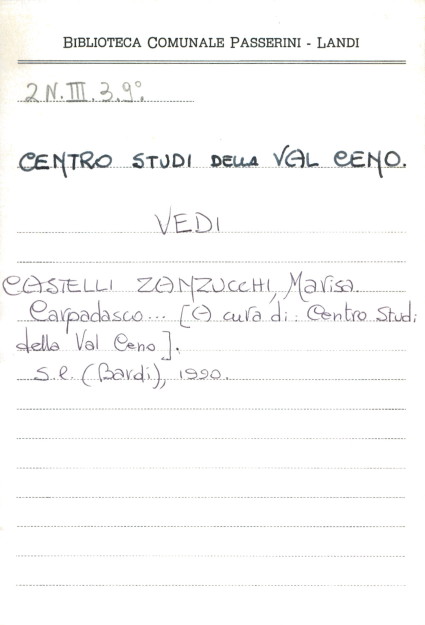 BIBLIOTECA COMUNALE PASSERINI - LANDI
2 N.III.3.9°.
CENTRO STUDI DELLA VAL CENO.
VEDI
CASTELLI ZANZUCCHI, Marisa.
Carpadasco... [A cura di: Centro Studi
della Val Ceno].
S.l. (Bardi), 1990.